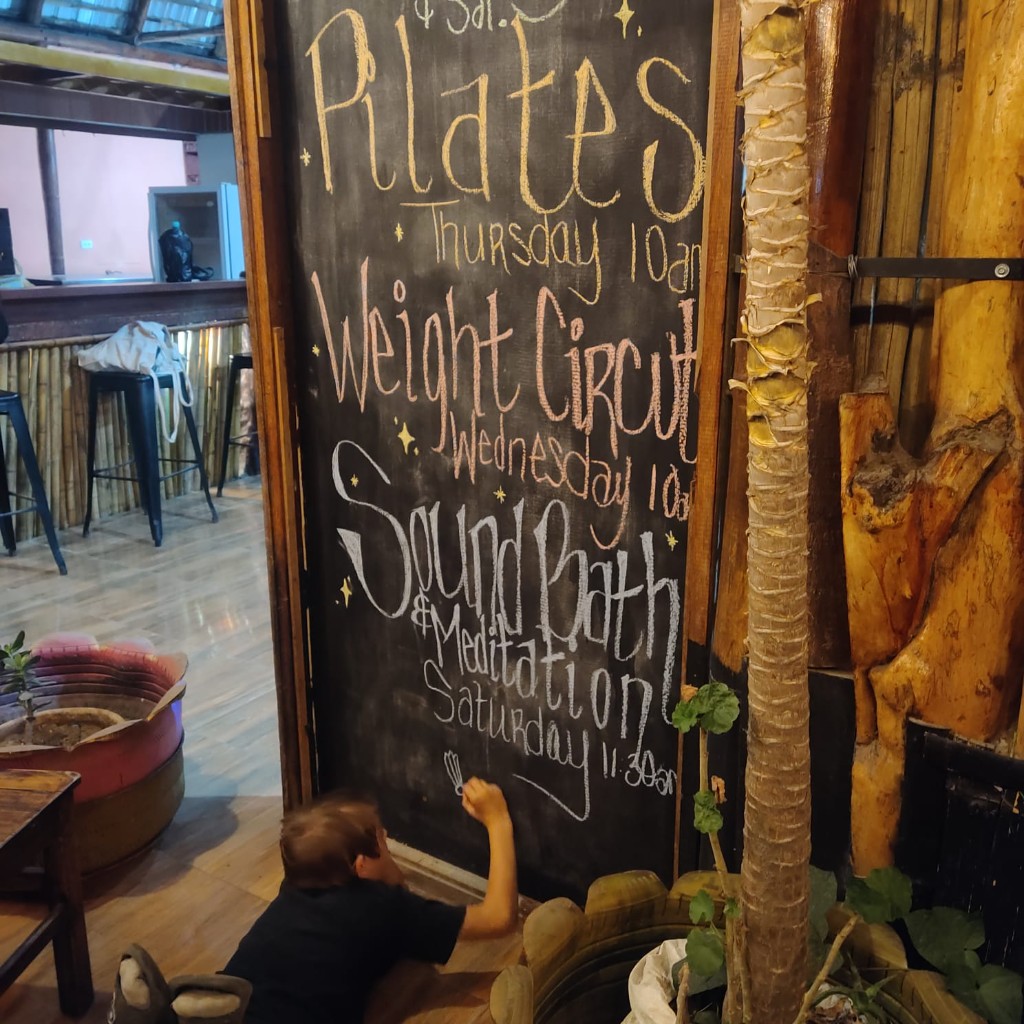 & Sat.
Pilates
Thursday 10am
Weight Circut
Wednesday 10a
Sound Bath
& Meditation
Saturday 11:30am